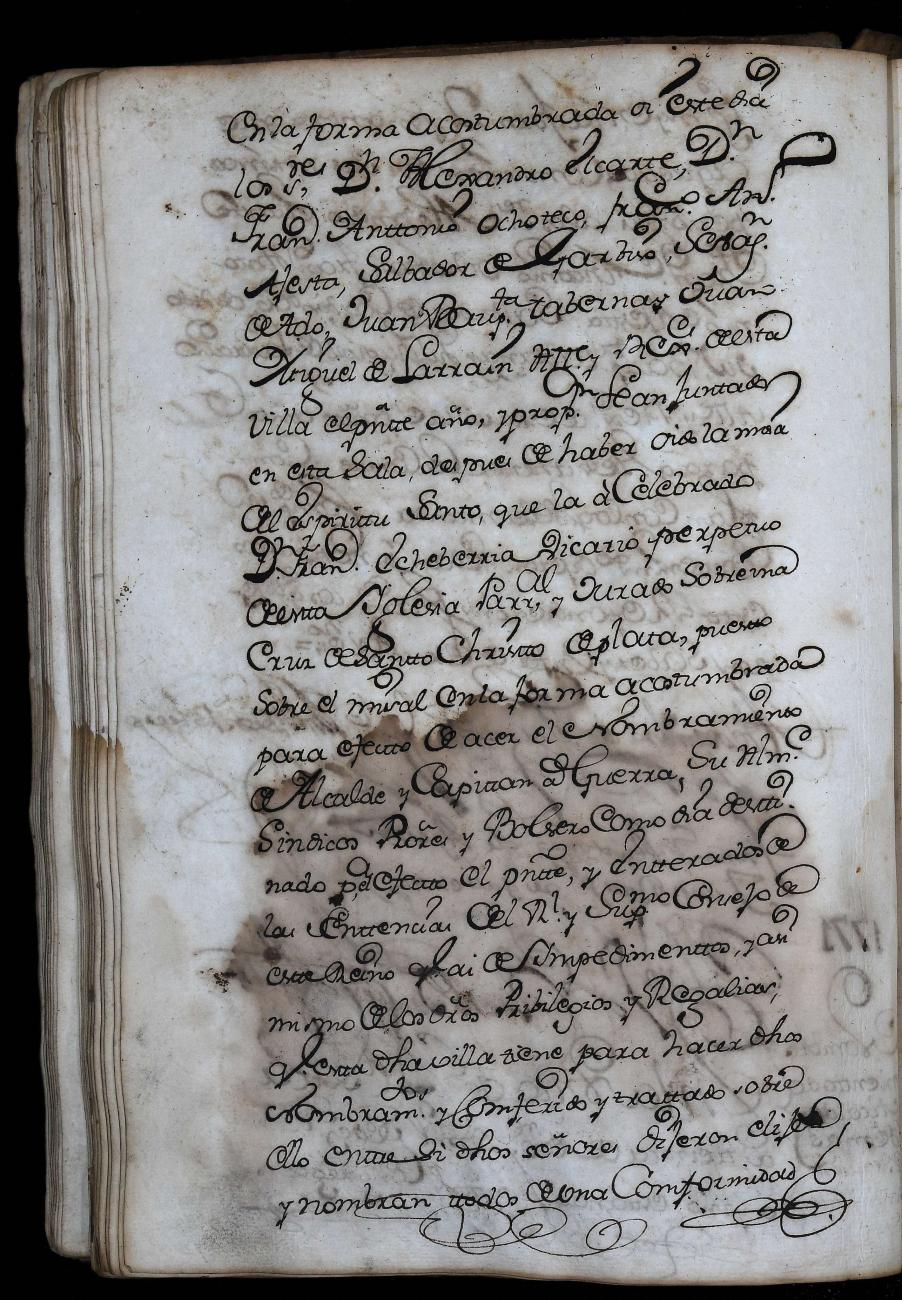 En la forma acostumbrada oi este dia
los s.res D.n Hernando Elcarte, D.n
Fran.co Anttonio Ochoteco, Fran.co Ant.o
Ajesta, Salbador de Garbiso, Sevas.n
de Ado, Juan Baup.ta tabernas Juan
Miguel de Larrain Alle y R.es de esta
Villa el pnte año, y prop. Se an Juntado
en esta Sala, despues de haber oido la missa
del espiritu Santo, que la à Celebrado
D.n Fran.co Echeberria Vicario perpetuo
de esta Yglesia Parr.al, y Jurado Sobre una
Cruz de Santto Christto de plata, puesto
Sobre el missal en la forma acostumbrada
para efectto de acer el Nombramiento
de Alcalde y Capittan à Guerra, Su
Sindicos y Bolsero Como dia desti-
nado p.a el efectto el pntte, y Entterados de
las Senttencias del R.l y Sup.mo Consejo de
este Reino q.e ai de Ympedimenttos, y asi
mismo de los dros Pribilegios y Regalias,
q.e esta dha villa tiene para hacer dhos
Nombram.tos y Conferido y trattado sobre
ello entre Si dhos señores dijeron elijen
y nombran ttodos de una Comformidad
177